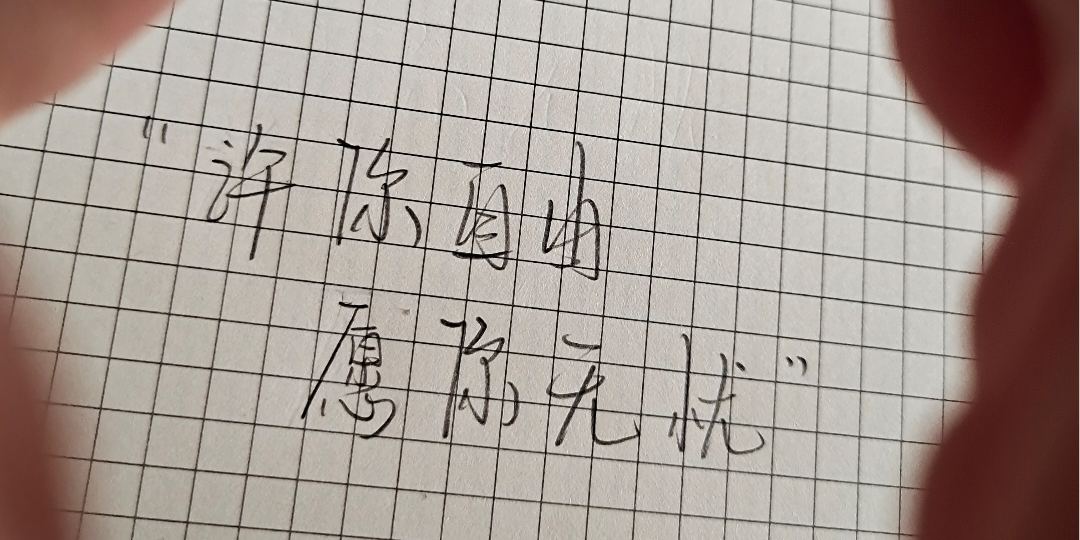 “许你自由
愿你无忧”